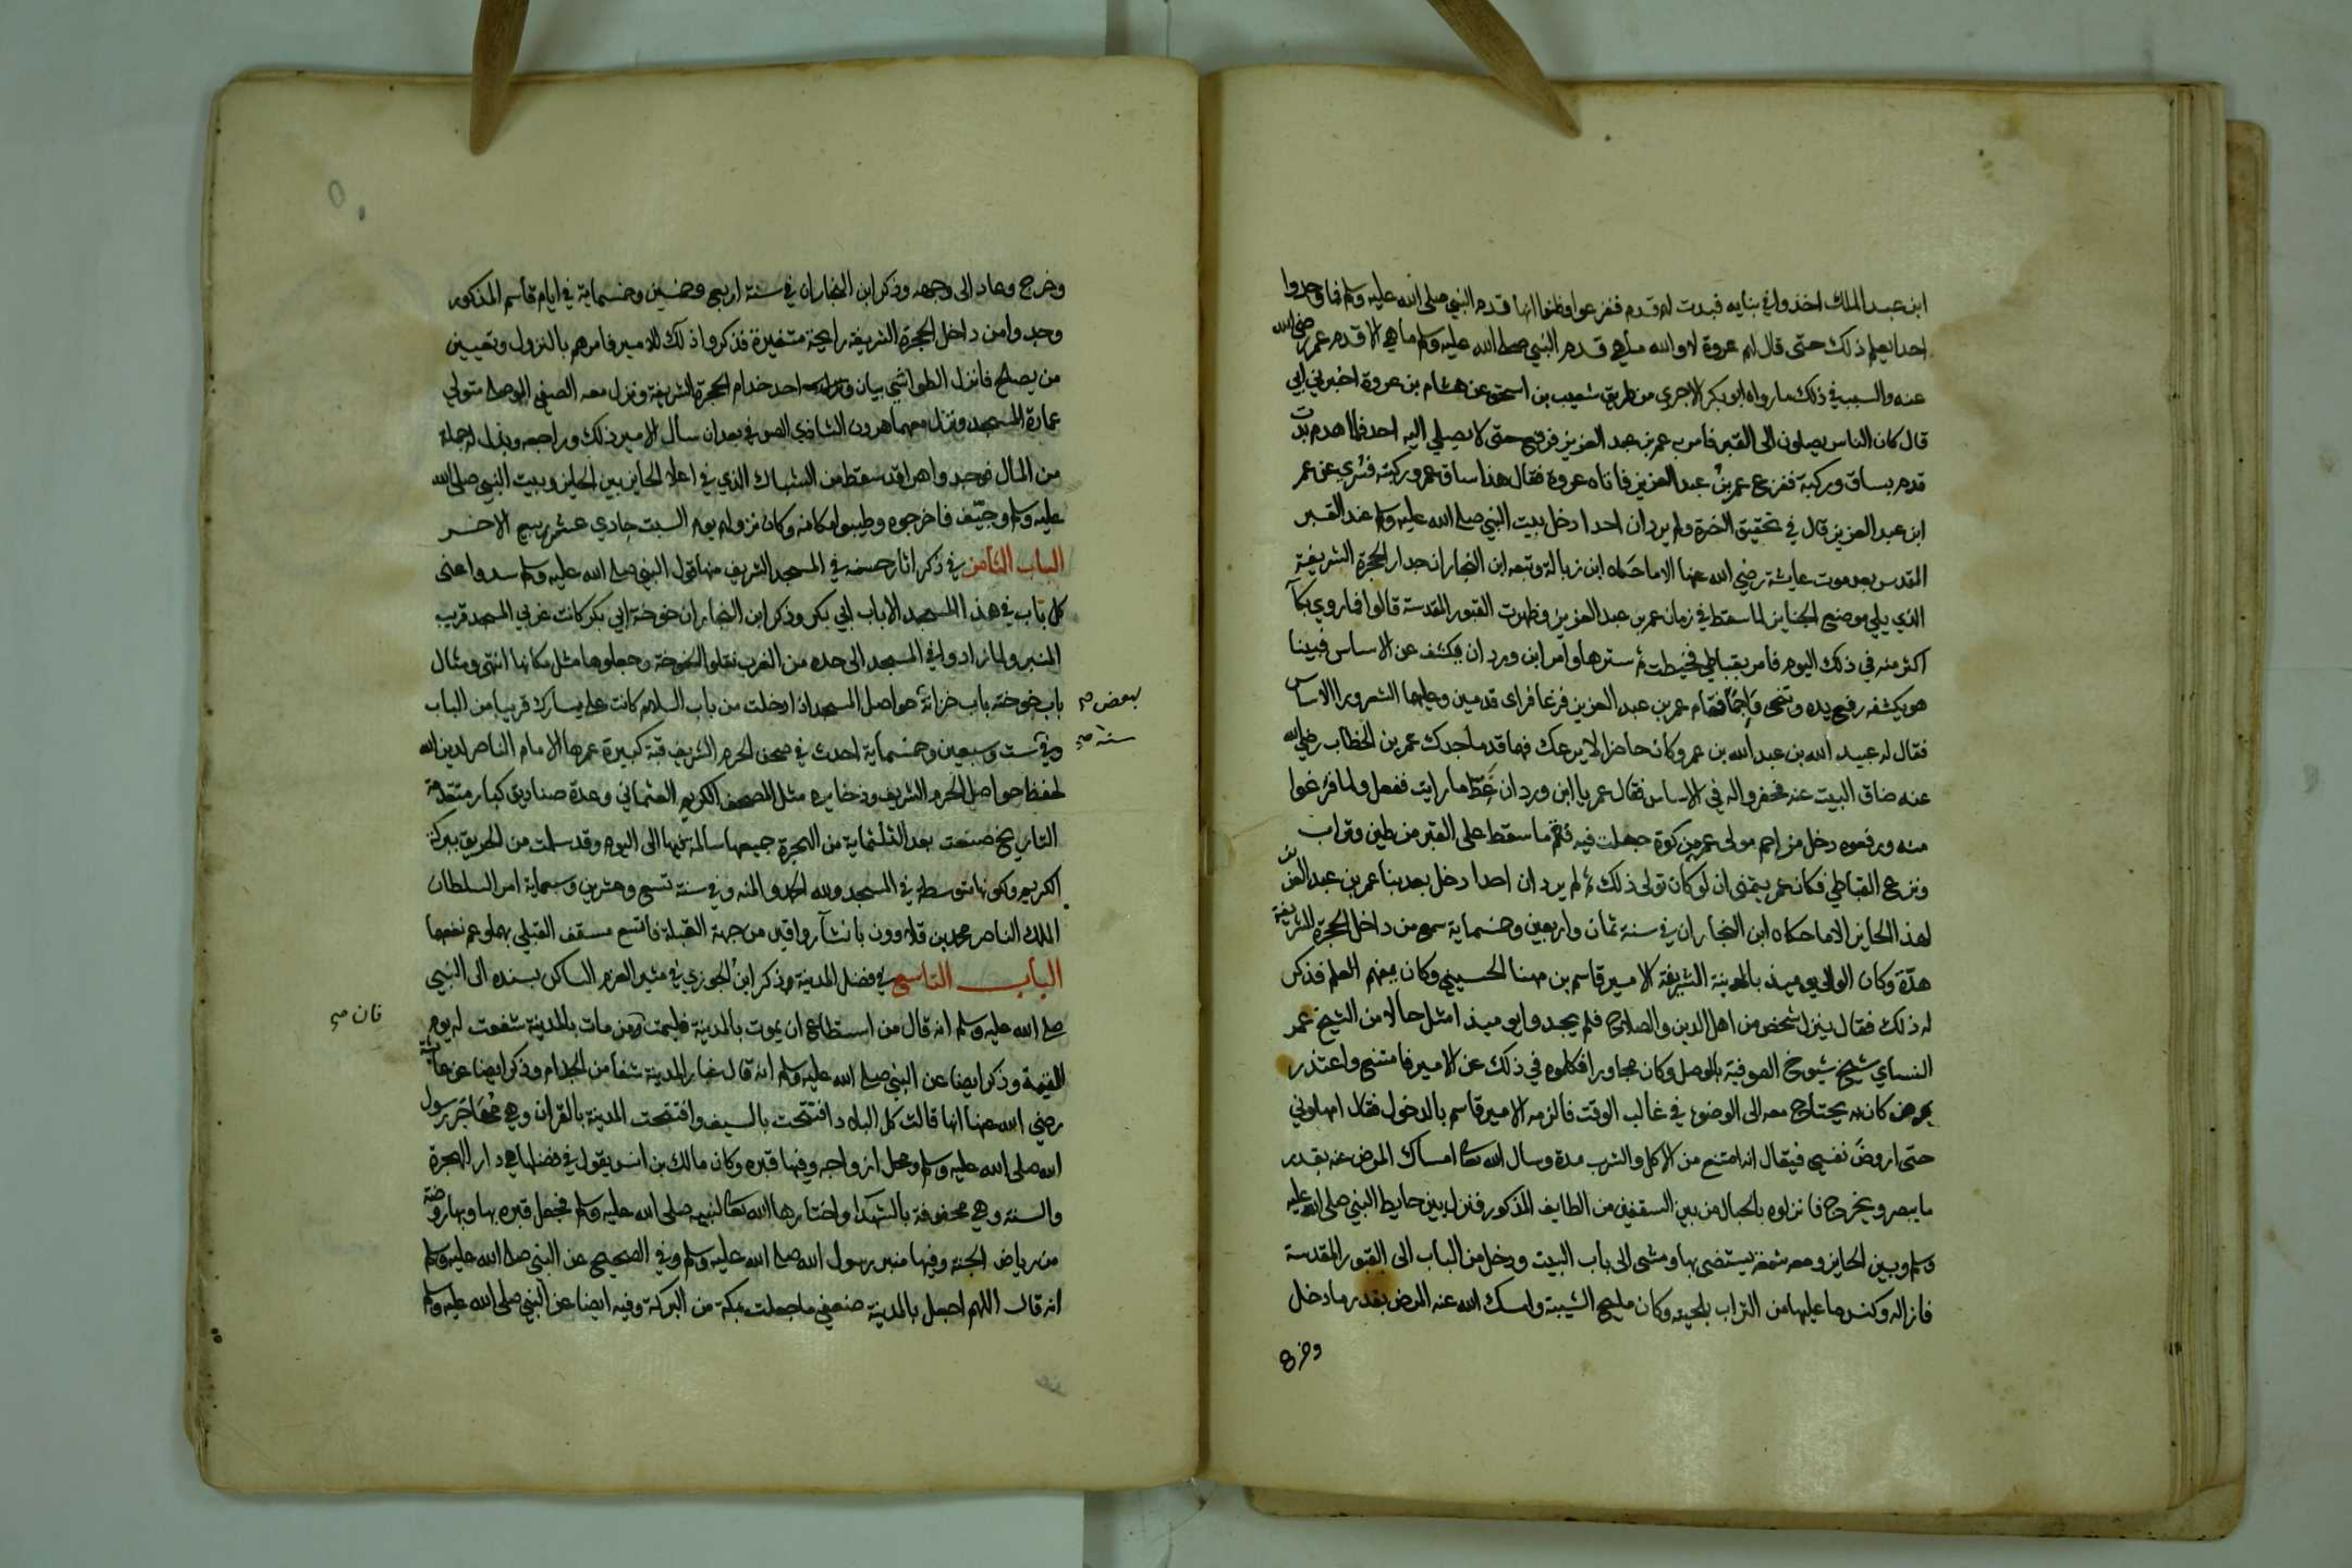 ابن عبد الملك اخذوا في بنايه فبدت لهم قدم ففزعوا وظنوا انها قدم النبي صلى الله عليه وسلم فما وجدوا
احدا يعلم ذلك حتى قال لهم عروة لا والله ما هي قدم النبي صلى الله عليه وسلم ما هي الا قدم عمر رضي الله
عنه والسبب في ذلك ما رواه ابو بكر الاجري من طريق شعيب بن اسحق عن هشام بن عروة اخبرني ابي
قال كان الناس يصلون الى القبر فامر به عمر بن عبد العزيز فرفع حتى لا يصلي اليه احد فلما هدم بدت
قدم بساق وركبة ففزع عمر بن عبد العزيز فاتاه عروة فقال هذا ساق عمر وركبته فسري عن عمر
ابن عبد العزيز قال في تحقيق النصرة ولم يرد ان احدا دخل بيت النبي صلى الله عليه وسلم عند القبر
المقدس بعد موت عايشة رضي الله عنها الا ما حكاه ابن زبالة وتبعه ابن النجار ان جدار الحجرة الشريفة
الذي يلي موضع الجنايز لما سقط في زمان عمر بن عبد العزيز وظهرت القبور المقدسة قالوا فما روي بكآ
اكثر منه في ذلك اليوم فامر بقباطي فخيطت ثم سترها وامر ابن وردان يكشف عن الاساس فبينا
هو يكشفه رفع يده وتنحى واجما فقام عمر بن عبد العزيز فزعا فراى قدمين وعليهما الشعر ورا الاساس
فقال له عبيد الله بن عبد الله بن عمر وكان حاضرا لا يرعك فهما قدما جدك عمر بن الخطاب رضي الله
عنه ضاق البيت عنه فحفروا له في الاساس فقال عمر يا ابن وردان غط ما رايت ففعل ولما فرغوا
منه ورفعوه دخل مزاحم مولى عمر من كوة جعلت فيه فقم ما سقط على القبر من طين وتراب
ونزع القباطي فكان عمر يتمنى ان لو كان تولى ذلك ثم لم يرد ان احدا دخل بعد بنا عمر بن عبد العزيز
لهذا الحايز الا ما حكاه ابن النجار ان في سنة ثمان واربعين وخمسماية سمع من داخل الحجرة الشريفة
هدّة وكان الوالي يوميذ بالمدينة الشريفة الامير قاسم بن مهنا الحسيني وكان يعظم العلم فذكر
له ذلك فقال ينزل شخص من اهل الدين والصلاح فلم يجدوا يوميذ امثل حالا من الشيخ عمر
النساي شيخ شيوخ الصوفية بالموصل وكان مجاورا فكلموه في ذلك عن الامير فامتنع واعتذر
بمرض كان به يحتاج معه الى الوضوء في غالب الوقت فالزمه الامير قاسم بالدخول فقال امهلوني
حتى اروض نفسي فيقال انه امتنع من الاكل والشرب مدة وسال الله تعا امساك المرض عنه بقدر
ما يبصر ويخرج فانزلوه بالحبال من بين السقفين من الطايف المذكور فنزل بين حايط النبي صلى الله عليه
وسلم وبين الحايز ومعه شمعة يستضي بها ومشى الى باب البيت ودخل من الباب الى القبور المقدسة
فازاله وكنس ما عليها من التراب بلحيته وكان مليح الشيبة وامسك الله عنه المرض بقدر ما دخل
وخرج
وخرج وعاد الى وجهه وذكر ابن النجار ان في سنة اربع وخمسين وخمسماية في ايام قاسم المذكور
وجدوا من داخل الحجرة الشريفة رايحة متغيرة فذكروا ذلك للامير فامرهم بالنزول وتعيين
من يصلح فانزل الطواشي بيان احد خدام الحجرة الشريفة ونزل معه الصفي الموصلي متولي
عمارة المسجد ونزل معهما هرون الشاذي الصوفي بعد ان سأل الامير ذلك وراجعه وبذل له جملة
من المال فوجدوا هرا قد سقط من الشباك الذي في اعلا الحايز بين الحايز وبيت النبي صلى الله
عليه وسلم وجيّف فاخرجوه وطيبوا مكانه وكان نزولهم يوم السبت حادي عشر ربيع الاخر
الباب الثامن في ذكر اثار حسنة في المسجد الشريف منها قول النبي صلى الله عليه وسلم سدوا عني
كل باب في هذا المسجد الا باب ابي بكر وذكر ابن النجار ان خوخة ابي بكر كانت غربي المسجد قريب
المنبر ولما زادوا في المسجد الى حده من الغرب نقلوا الخوخة وجعلوها مثل مكانها انتهى ومثال
باب خوخته باب خزانة حواصل المسجد اذا دخلت من باب السلام كانت على يسارك قريبا من الباب
وفي ست وسبعين وخمسماية احدث في صحن الحرم الشريف قبة كبيرة عمرها الامام الناصر لدين الله
لحفظ حواصل الحرم الشريف وذخايره مثل المصحف الكريم العثماني وعدة صناديق كبار متقدمة
التاريخ صنعت بعد الثلثماية من الهجرة جميعها سالمة فيها الى اليوم وقد سلمت من الحريق ببركة
الكريم وكونها متوسطة في المسجد ولله الحمد والمنه وفي سنة تسع وعشرين وسبعماية امر السلطان
الملك الناصر محمد بن قلاوون بانشآ رواقين من جهة القبلة فاتسع مسقف القبلي بهما وعم نفعهما
الباب التاسع في فضل المدينة وذكر ابن الجوزي في مثير العزم الساكن بسنده الى النبي
صلى الله عليه وسلم انه قال من استطاع ان يموت بالمدينة فليمت ومن مات بالمدينة شفعت له يوم
القيمة وذكر ايضا عن النبي صلى الله عليه وسلم انه قال غبار المدينة شفا من الجذام وذكر ايضا عن عايشة
رضي الله عنها انها قالت كل البلاد افتتحت بالسيف وافتتحت المدينة بالقران وهي مهاجر رسول
الله صلى الله عليه وسلم ومحل ازواجه وفيها قبره وكان مالك بن انس يقول في فضلها هي دار الهجرة
والسنة وهي محفوفة بالشهدا واختارها الله تعا لنبيه صلى الله عليه وسلم فجعل قبره بها وبها روضة
من رياض الجنة وفيها منبر رسول الله صلى الله عليه وسلم وفي الصحيح عن النبي صلى الله عليه وسلم
انه قال اللهم اجعل بالمدينة ضعفي ما جعلت بمكة من البركة وفيه ايضا عن النبي صلى الله عليه وسلم
لبعض صح
سنة صح
فان صح